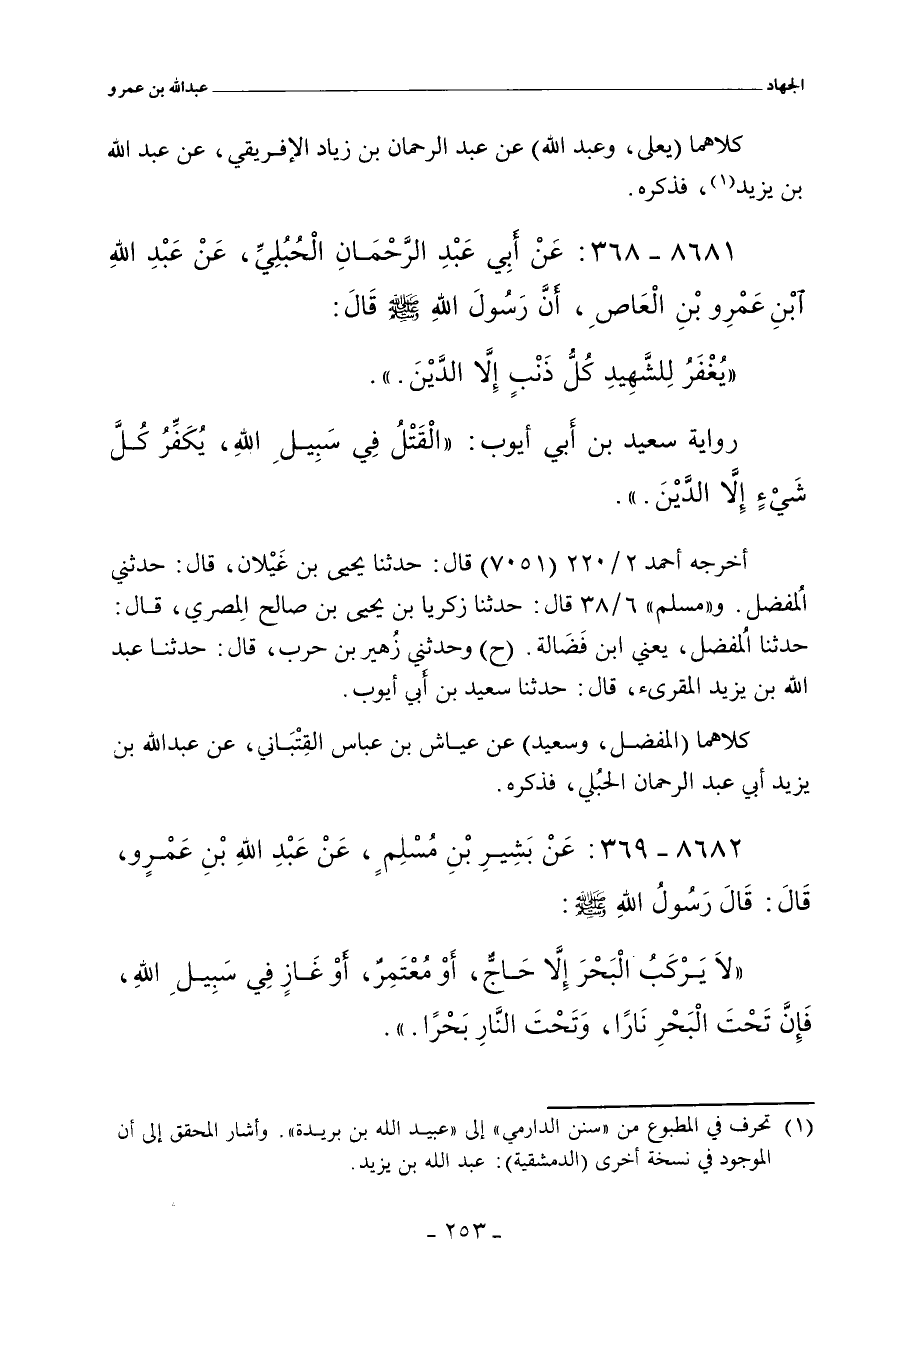 الجهاد ــــــــــــــــــــــــــــــــ عبدالله بن عمرو
كلاهما (يعلى، وعبد الله) عن عبد الرحمان بن زياد الإفريقي، عن عبد الله
بن يزيد(١)، فذكره.
٨٦٨١ - ٣٦٨: عَنْ أَبِي عَبْدِ الرَّحْمَانِ الْحُبُلِيِّ، عَنْ عَبْدِ اللهِ
آبْنِ عَمْرِو بْنِ الْعَاصِ، أَنَّ رَسُولَ اللهِ ﷺ قَالَ:
«يُغْفَرُ لِلشَّهِيدِ كُلُّ ذَنْبٍ إِلَّا الدَّيْنَ.».
رواية سعيد بن أبي أيوب: «الْقَتْلُ فِي سَبِيلِ اللهِ، يُكَفِّرُ كُلَّ
شَيْءٍ إِلَّا الدَّيْنَ.».
أخرجه أحمد ٢/٢٢٠ (٧٠٥١) قال: حدثنا يحيى بن غَيْلان، قال: حدثني
المُفضل. و«مسلم» ٦/٣٨ قال: حدثنا زكريا بن يحيى بن صالح المِصري، قال:
حدثنا المُفضل، يعني ابن فَضَالة. (ح) وحدثني زُهير بن حرب، قال: حدثنا عبد
الله بن يزيد المقرىء، قال: حدثنا سعيد بن أَبي أيوب.
كلاهما (المفضل، وسعيد) عن عياش بن عباس القِتْبَاني، عن عبدالله بن
يزيد أبي عبد الرحمان الحبُلي، فذكره.
٨٦٨٢ - ٣٦٩: عَنْ بَشِيرِ بْنِ مُسْلِمٍ، عَنْ عَبْدِ اللهِ بْنِ عَمْرٍو،
قَالَ: قَالَ رَسُولُ اللهِ ﷺ:
«لاَ يَرْكَبُ الْبَحْرَ إِلَّا حَاجٌّ، أَوْ مُعْتَمِرٌ، أَوْ غَازٍ فِي سَبِيلِ اللهِ،
فَإِنَّ تَحْتَ الْبَحْرِ نَارًا، وَتَحْتَ النَّارِ بَحْرًا.».
(١) تحرف في المطبوع من «سنن الدارمي» إلى «عبيد الله بن بريدة». وأشار المحقق إلى أن
الموجود في نسخة أخرى (الدمشقية): عبد الله بن يزيد.
- ٢٥٣ -